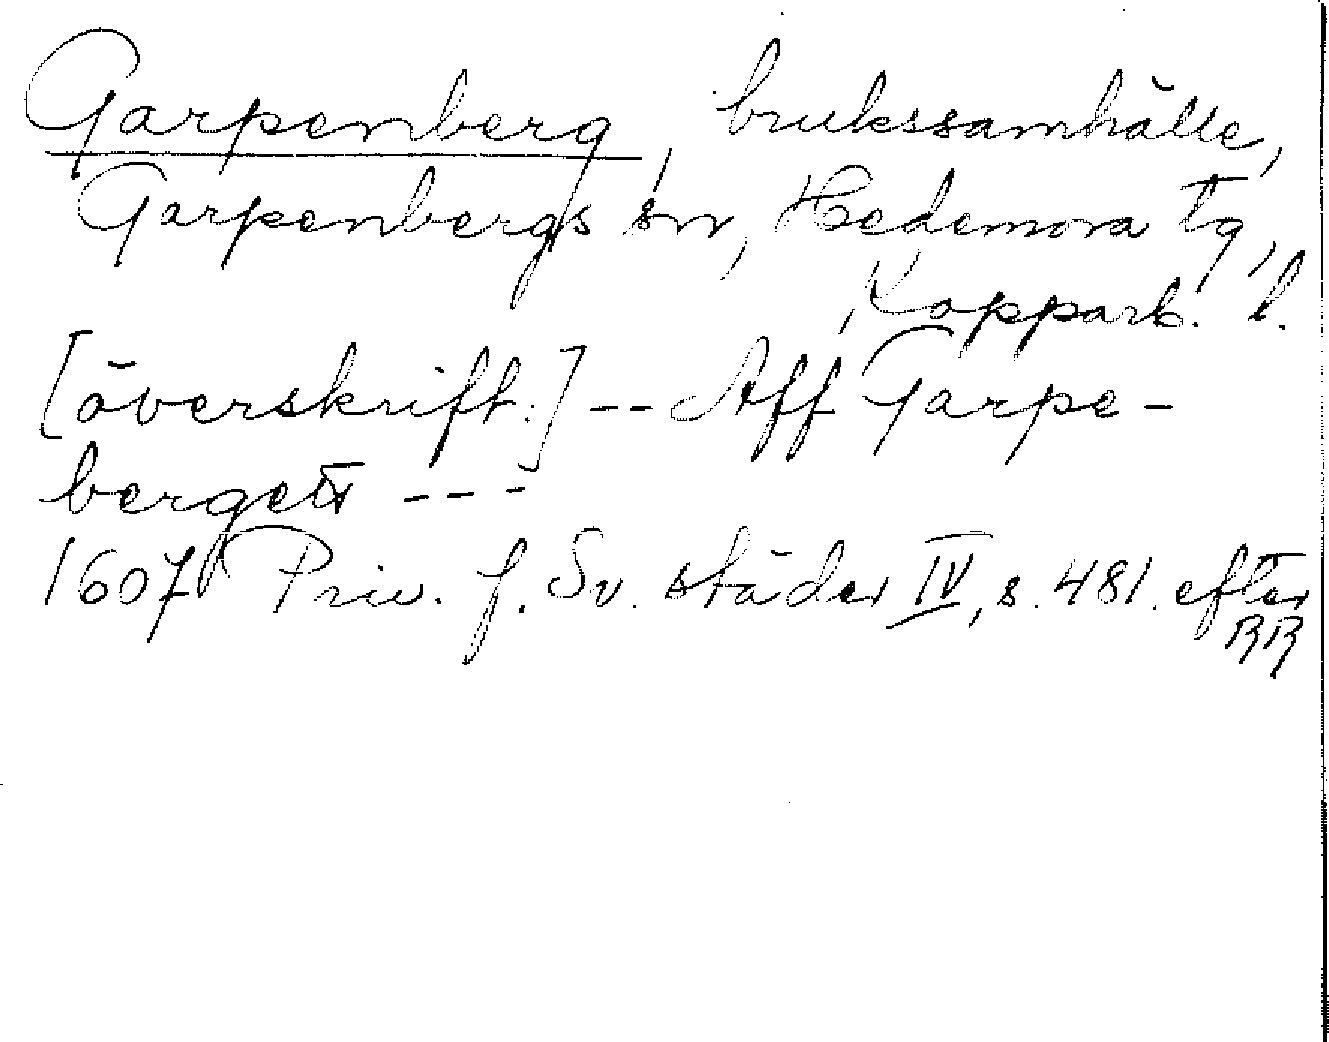 Garpenberg, brukssamhälle,
Garpenbergs sn, Hedemora tg,
Kopparb. l.
[överskrift:] -- Aff Garpe-
bergett ---
1607 Priv. f. Sv. städer IV, s. 481. efter
RR